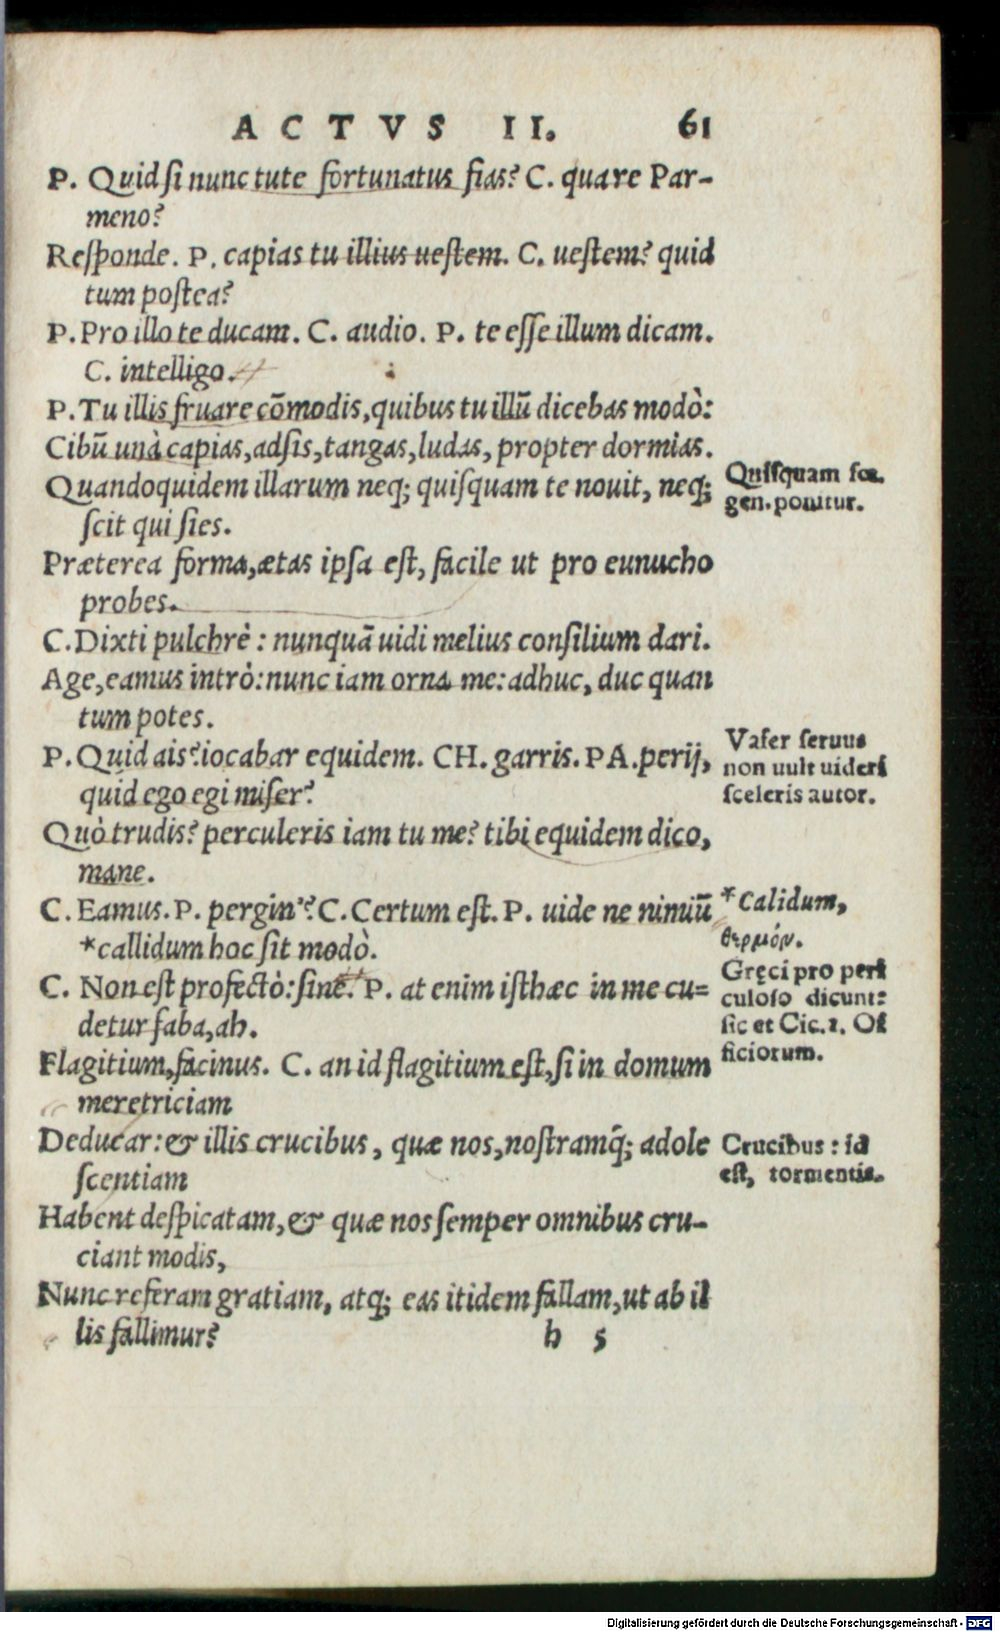 ACTVS II. 61
P. Quid si nunc tute fortunatus fias? C. quare Par-
meno?
Responde. P. capias tu illius uestem. C. uestem? quid
tum postea?
P. Pro illo te ducam. C. audio. P. te esse illum dicam.
C. intelligo.
P. Tu illis fruare cõmodis, quibus tu illũ dicebas modò:
Cibũ unà capias, adsis, tangas, ludas, propter dormias.
Quandoquidem illarum neq; quisquam te nouit, neq;
scit qui sies.
Præterea forma, ætas ipsa est, facile ut pro eunucho
probes.
C. Dixti pulchrè: nunquã uidi melius consilium dari.
Age, eamus intrò: nunc iam orna me: adhuc, duc quan
tum potes.
P. Quid ais? iocabar equidem. CH. garris. PA. perij,
quid ego egi miser?
Quò trudis? perculeris iam tu me? tibi equidem dico,
mane.
C. Eamus. P. pergin'? C. Certum est. P. uide ne nimiũ
*callidum hoc sit modò.
C. Non est profectò: sine. P. at enim isthæc in me cu=
detur faba, ah.
Flagitium, facinus. C. an id flagitium est, si in domum
meretriciam
Deducar: & illis crucibus, quæ nos, nostramq̃; adole
scentiam
Habent despicatam, & quæ nos semper omnibus cru-
ciant modis,
Nunc referam gratiam, atq; eas itidem fallam, ut ab il
lis fallimur?
h 5
Quisquam fœ.
gen. ponitur.
Vafer seruus
non uult uideri
sceleris autor.
*Calidum,
θερμόν.
Gręci pro peri
culoso dicunt:
sic et Cic. 1. Of
ficiorum.
Crucibus: id
est, tormentis.
Digitalisierung gefördert durch die Deutsche Forschungsgemeinschaft - DFG